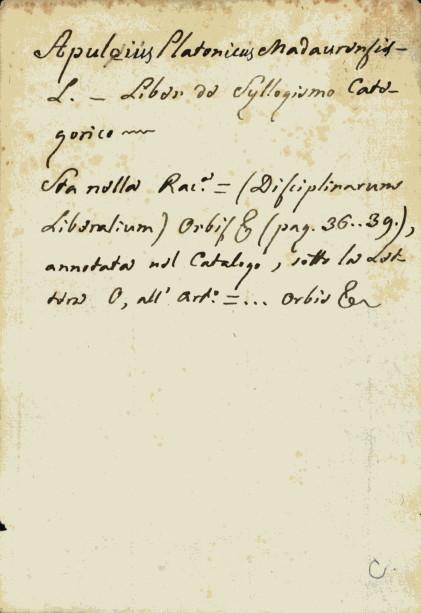 Apuleius Platonicus Madaurensis –
L. – Liber de Syllogismo Cate-
gorico
Sta nella Rac.ª = (Disciplinarum
Liberalium) Orbis & (pag. 36..39.),
annotata nel Catalogo, sotto la Let-
tera O, all' Art.º = ... Orbis &
C.